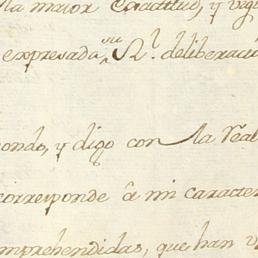 la maior exactitud, y vigi
expresada su Rl. deliberaci
ondo, y digo con la Real
corresponde â mi caracter
mprehendidas, que han v